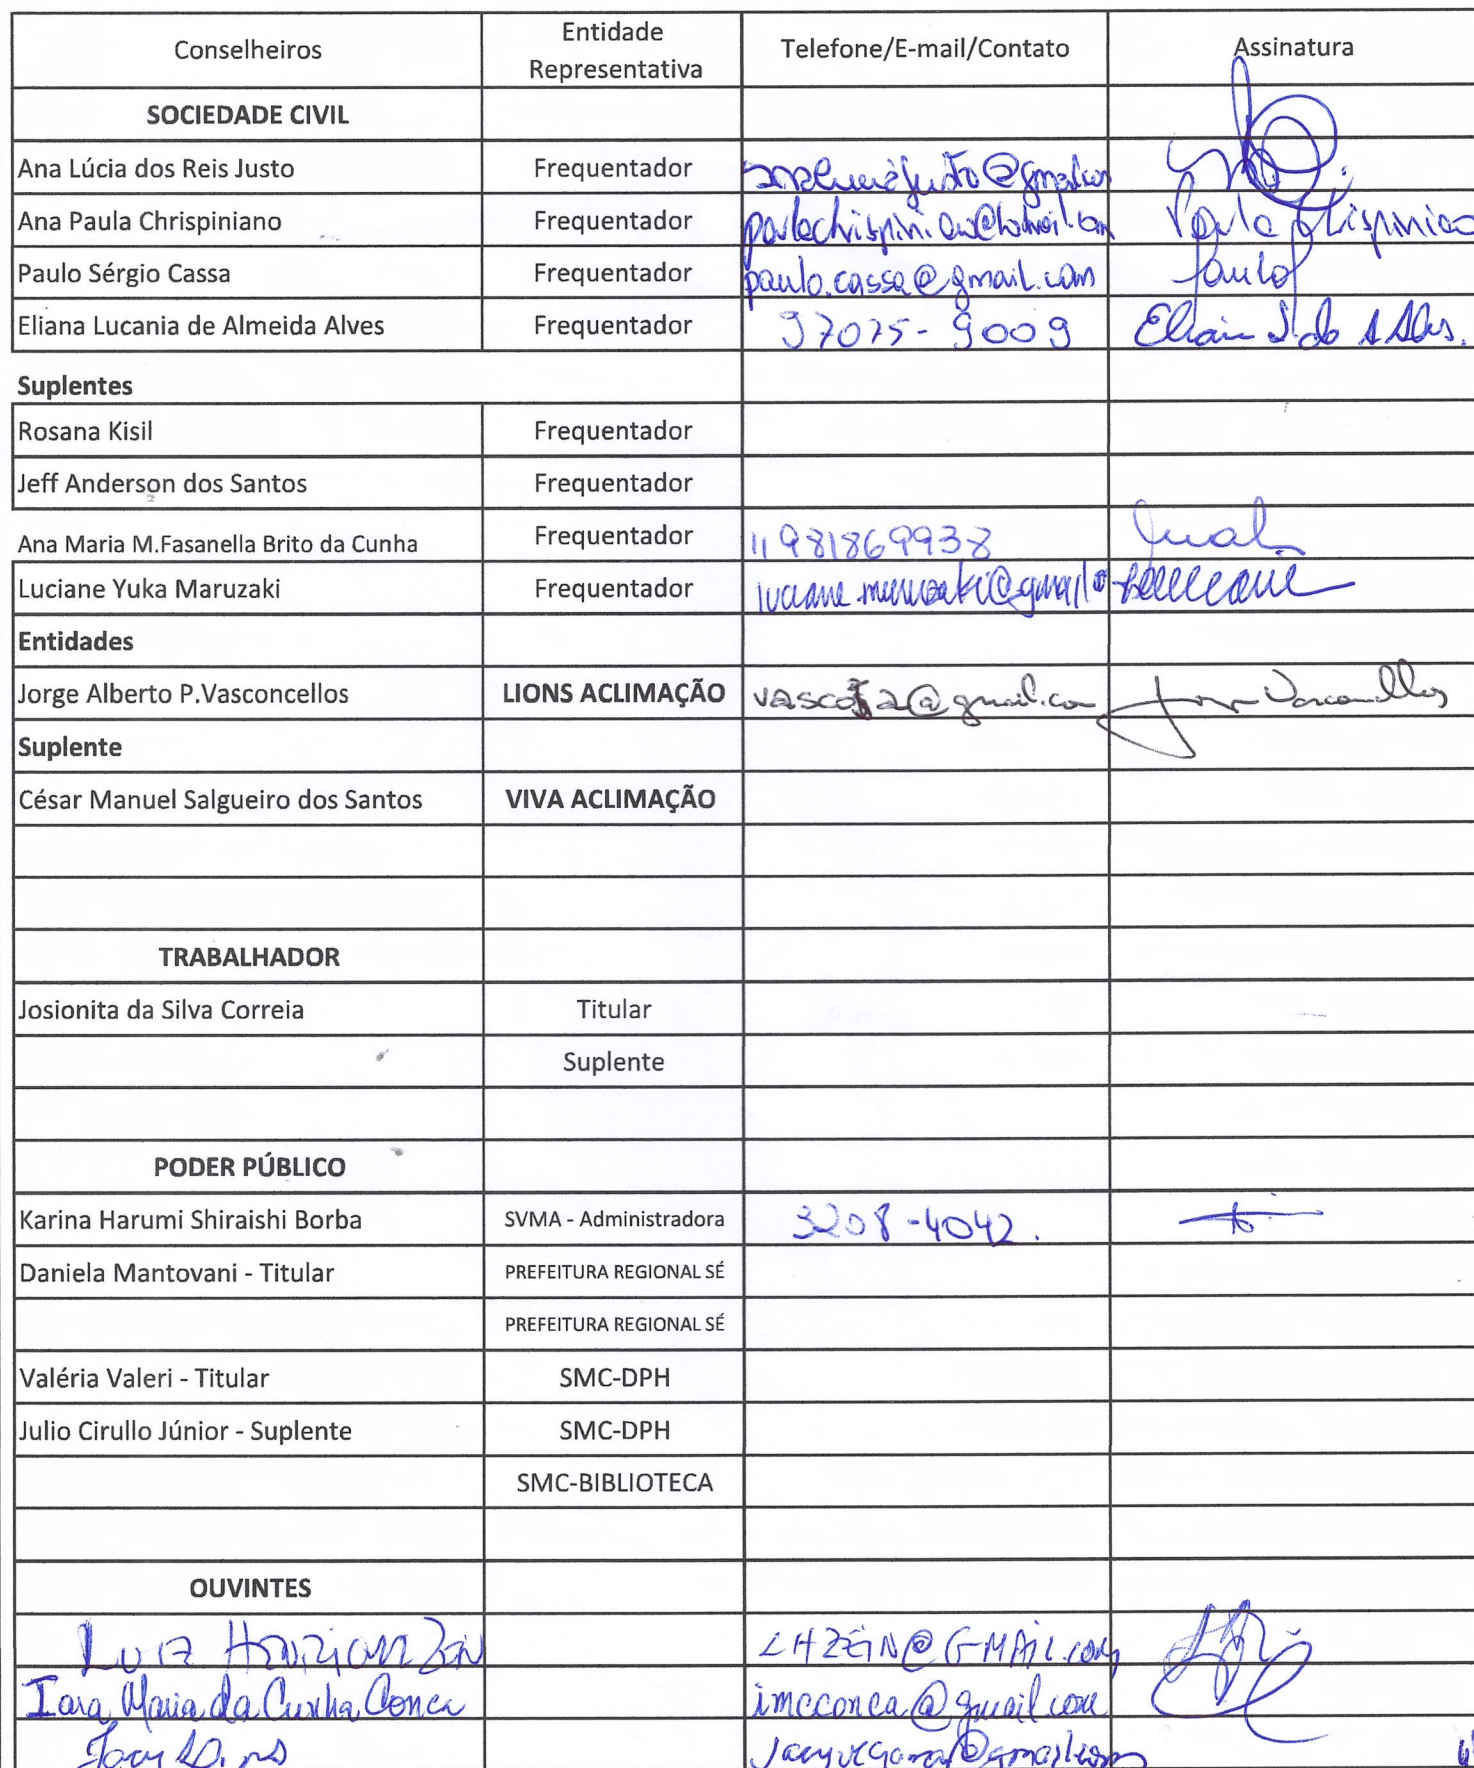 Conselheiros Entidade Representativa Telefone/E-mail/Contato Assinatura
SOCIEDADE CIVIL
Ana Lúcia dos Reis Justo Frequentador
Ana Paula Chrispiniano Frequentador Paula Chrispiniano
Paulo Sérgio Cassa Frequentador paulo.cassa@gmail.com Paulo
Eliana Lucania de Almeida Alves Frequentador 97075-9009
Suplentes
Rosana Kisil Frequentador
Jeff Anderson dos Santos Frequentador
Ana Maria M.Fasanella Brito da Cunha Frequentador 11 981869938
Luciane Yuka Maruzaki Frequentador
Entidades
Jorge Alberto P.Vasconcellos LIONS ACLIMAÇÃO Jorge Vasconcellos
Suplente
César Manuel Salgueiro dos Santos VIVA ACLIMAÇÃO
TRABALHADOR
Josionita da Silva Correia Titular
Suplente
PODER PÚBLICO
Karina Harumi Shiraishi Borba SVMA - Administradora 3208-4042.
Daniela Mantovani - Titular PREFEITURA REGIONAL SÉ
PREFEITURA REGIONAL SÉ
Valéria Valeri - Titular SMC-DPH
Julio Cirullo Júnior - Suplente SMC-DPH
SMC-BIBLIOTECA
OUVINTES
Luiz LHZEIN@GMAIL.com
Iara Maria da Cunha Conca imcconca@gmail.com